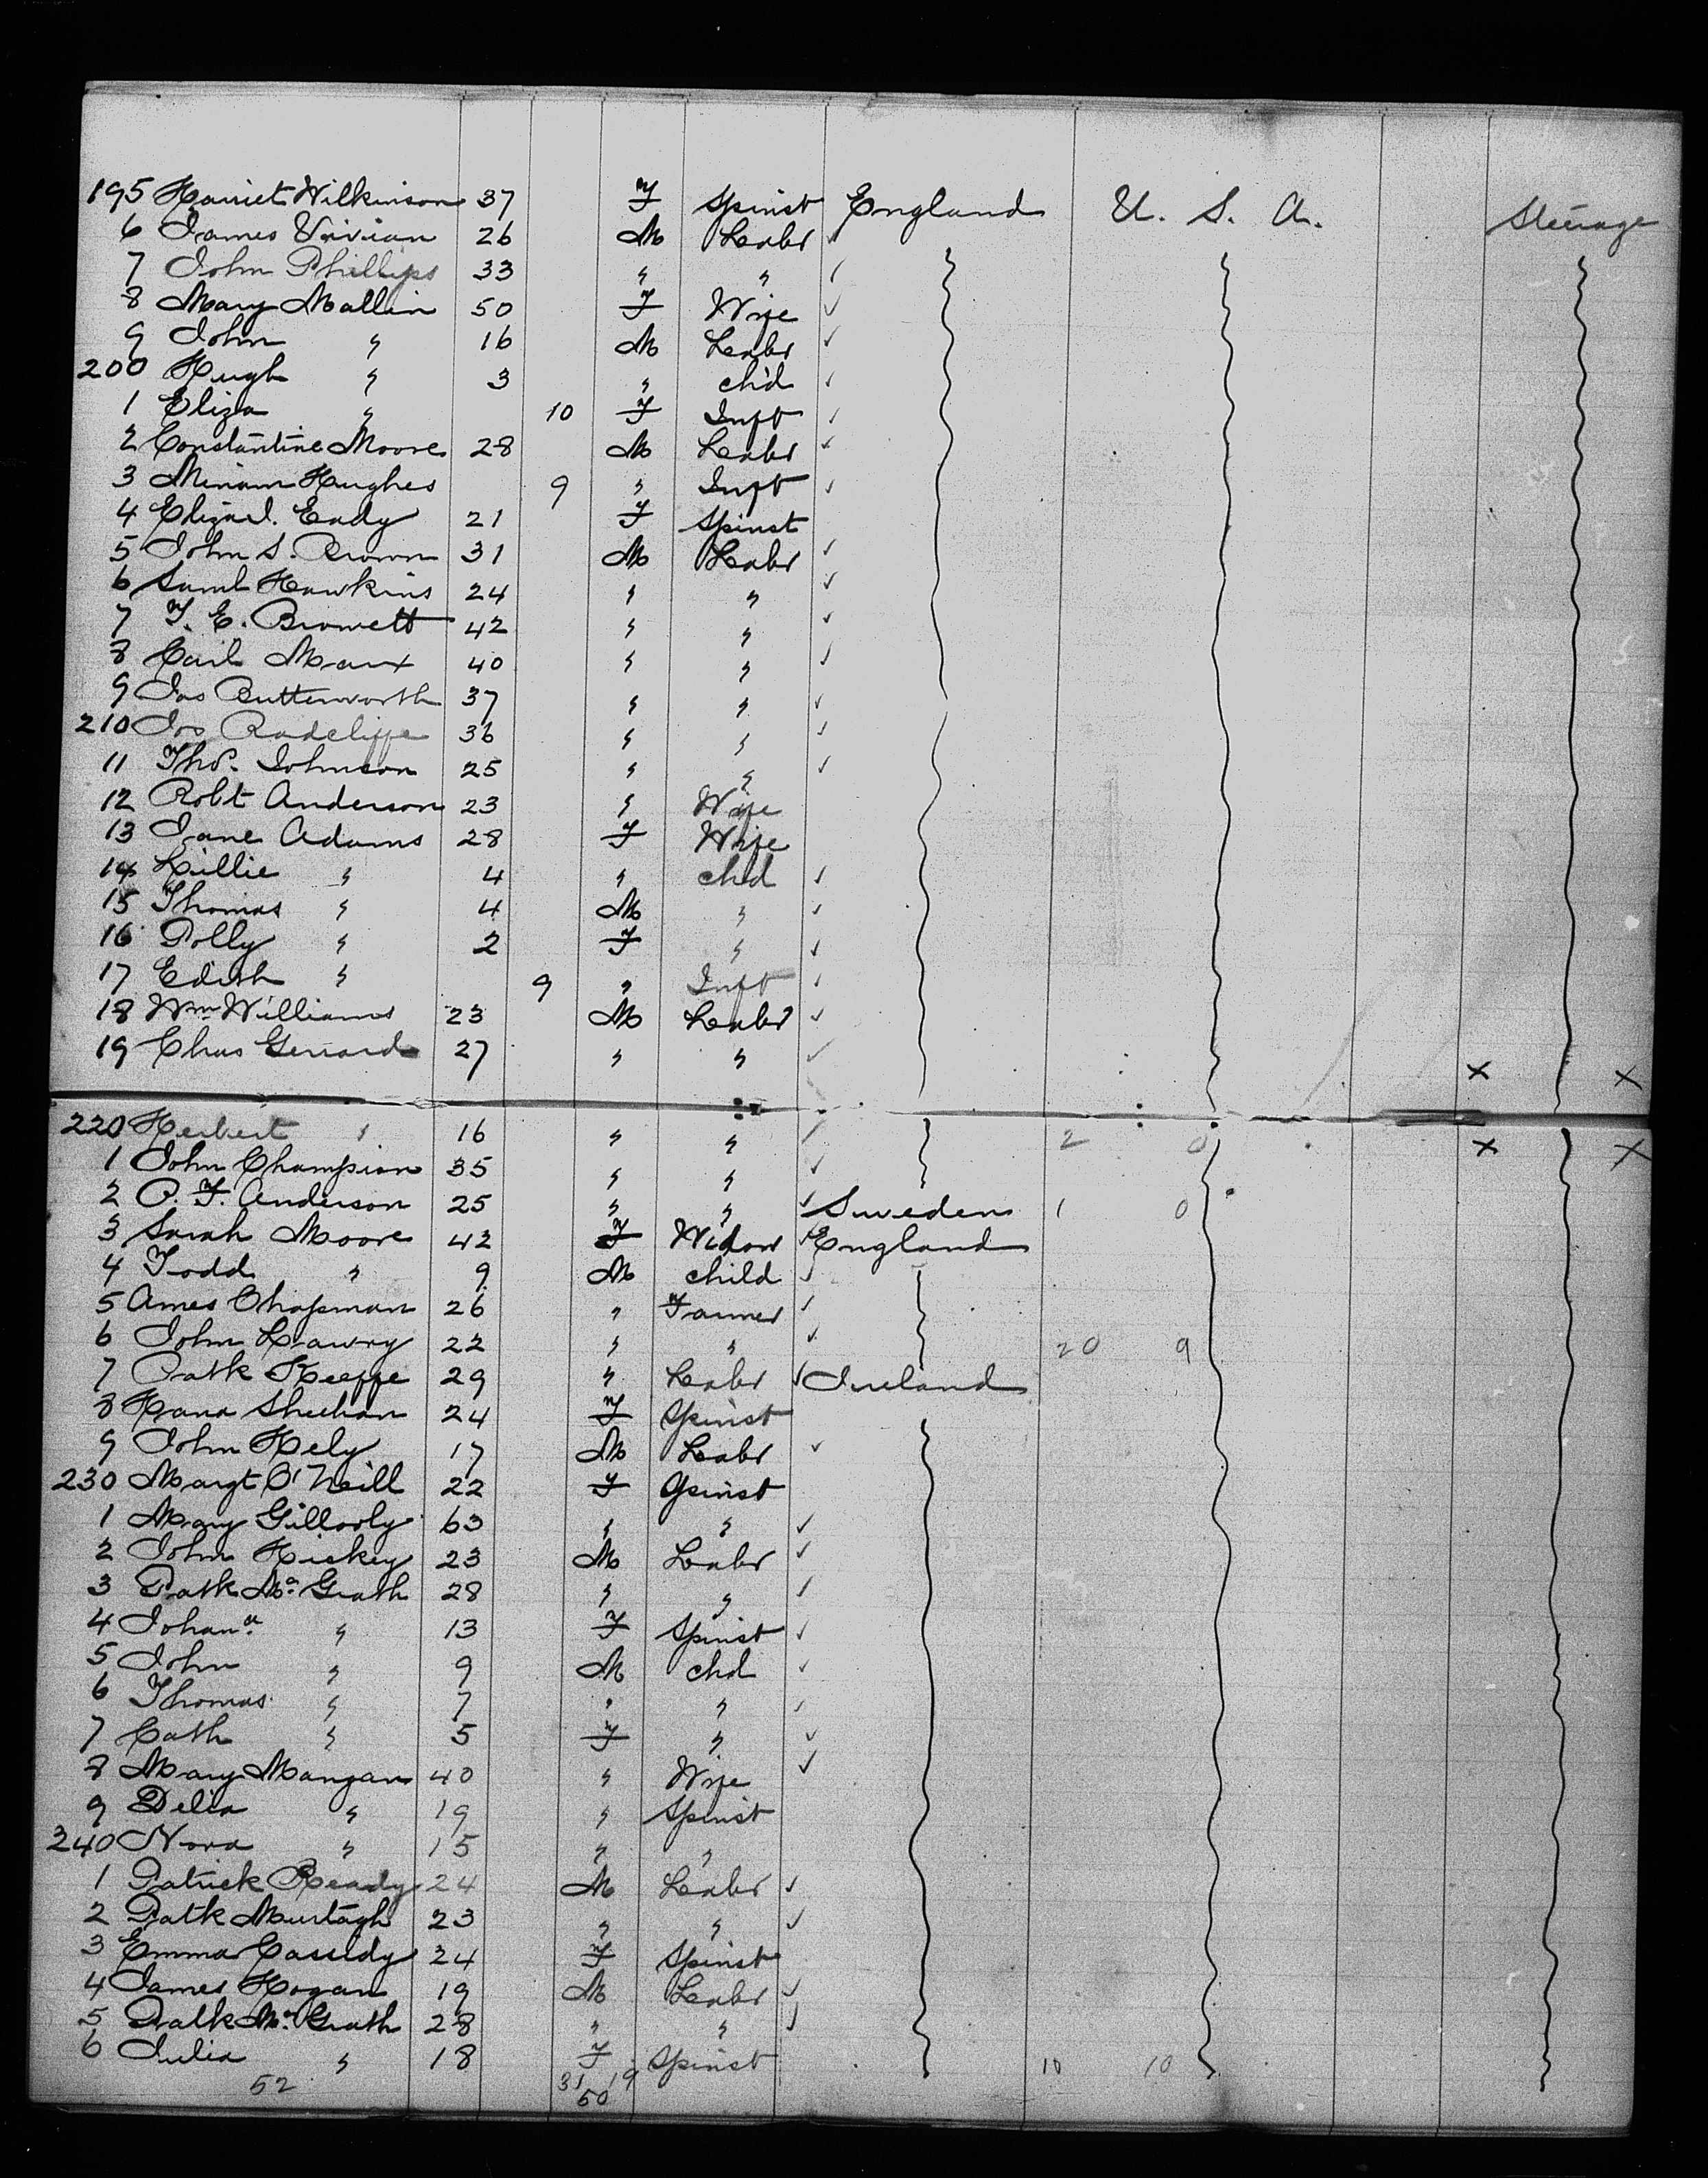 195 Harriet Wilkinson 37 F Spinst England U. S. A. Steerage
6 James Vivian 26 M Labr ✓
7 John Phillips 33 " " ✓
8 Mary Mallin 50 F Wife ✓
9 John " 16 M Labr ✓
200 Hugh " 3 " ch'd ✓
1 Eliza " 10 F Inft ✓
2 Constantine Moore 28 M Labr ✓
3 Miriam Hughes 9 " Inft ✓
4 Eady 21 F Spinst
5 John S. Brown 31 M Labr ✓
6 Saml Hawkins 24 " " ✓
7 T. E. Browett 42 " " ✓
8 Carl Marx 40 " " ✓
9 Jas Butterworth 37 " " ✓
210 Jos Radcliffe 36 " " ✓
11 Thos. Johnson 25 " " ✓
12 Robt Anderson 23 " Wife
13 Jane Adams 28 F Wife
14 Lillie " 4 " chd ✓
15 Thomas " 4 M " ✓
16 Polly " 2 F " ✓
17 Edith " 9 " Inft ✓
18 Wm Williams 23 M Labr ✓
19 Chas Gerrard 27 " " ✓ x x
220 Herbert " 16 " " ✓ 2 0 x x
1 John Champion 35 " " ✓
2 P. F. Anderson 25 " " ✓ Sweden 1 0
3 Sarah Moore 42 F Widow ✓ England
4 Todd " 9 M child ✓
5 Ames Chapman 26 " Farmer ✓
6 John Lawry 22 " " ✓ 20 9
7 Patk Keeffe 29 " Labr ✓ Ireland
8 Hana Sheehan 24 F Spinst
9 John Hely 17 M Labr ✓
230 Margt O'Neill 22 F Spinst
1 Mary Gillooly 63 " " ✓
2 John Hickey 23 M Labr ✓
3 Patk Mc Grath 28 " " ✓
4 Johana " 13 F Spinst ✓
5 John " 9 M chd ✓
6 Thomas " 7 " " ✓
7 Cath " 5 F " ✓
8 Mary Mangan 40 " Wife ✓
9 Delia " 19 " Spinst
240 Nora " 15 " "
1 Patrick Ready 24 M Labr ✓
2 Patk Murtagh 23 " " ✓
3 Emma Cassidy 24 F Spinst
4 James Hogan 19 M Labr ✓
5 Patk Mc Grath 28 " " ✓
6 Julia " 18 F Spinst 10 10
52 31 19
50